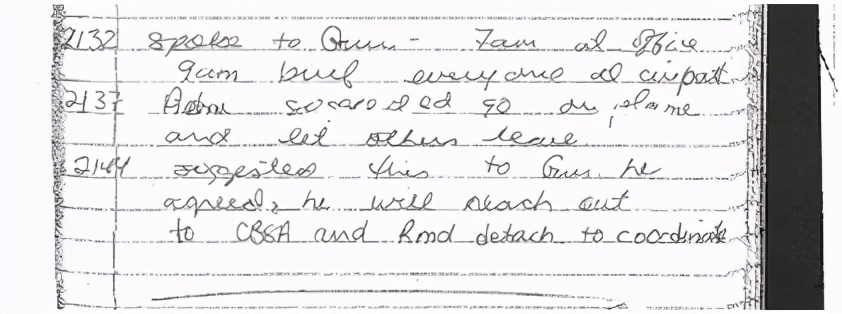 2132 spoke to - 7am at office
9am brief everyone at airport
2137 suggested go on plane
and let others leave
2144 suggested this to he
agreed, he will reach out
to CBSA and Rmd detach to coordinate